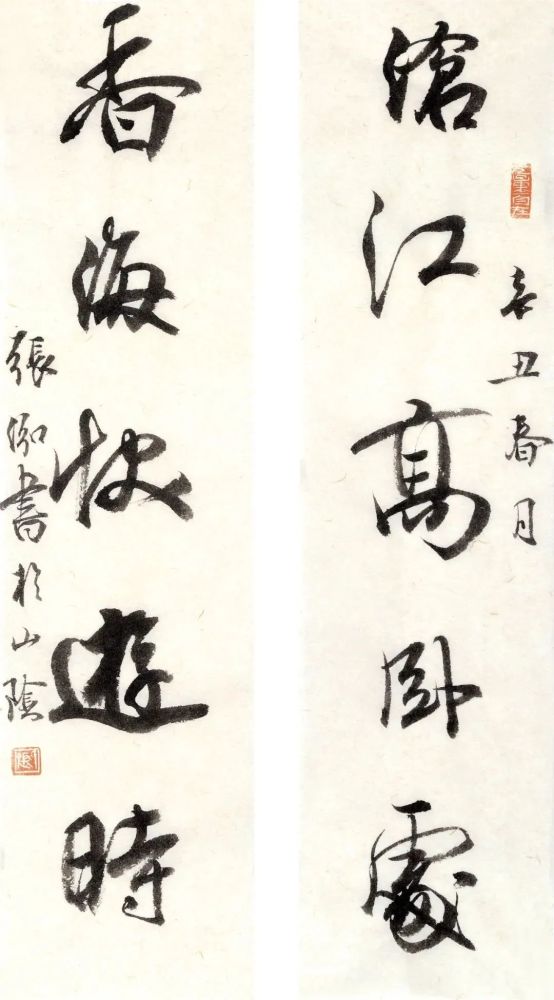 滄江高卧處
辛丑春月
香海快遊時
張弧書於山陰